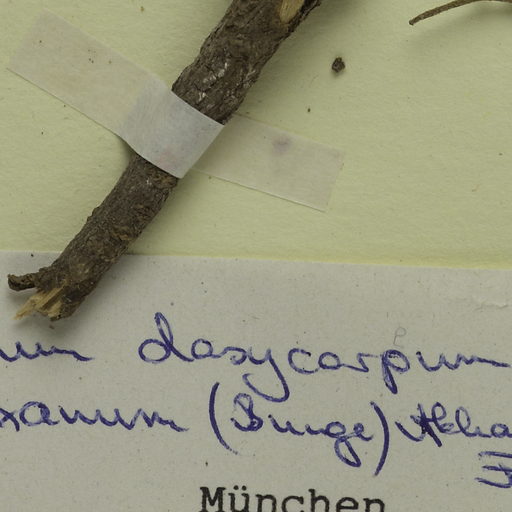 um dasycarpum
xanum (Bunge)
München